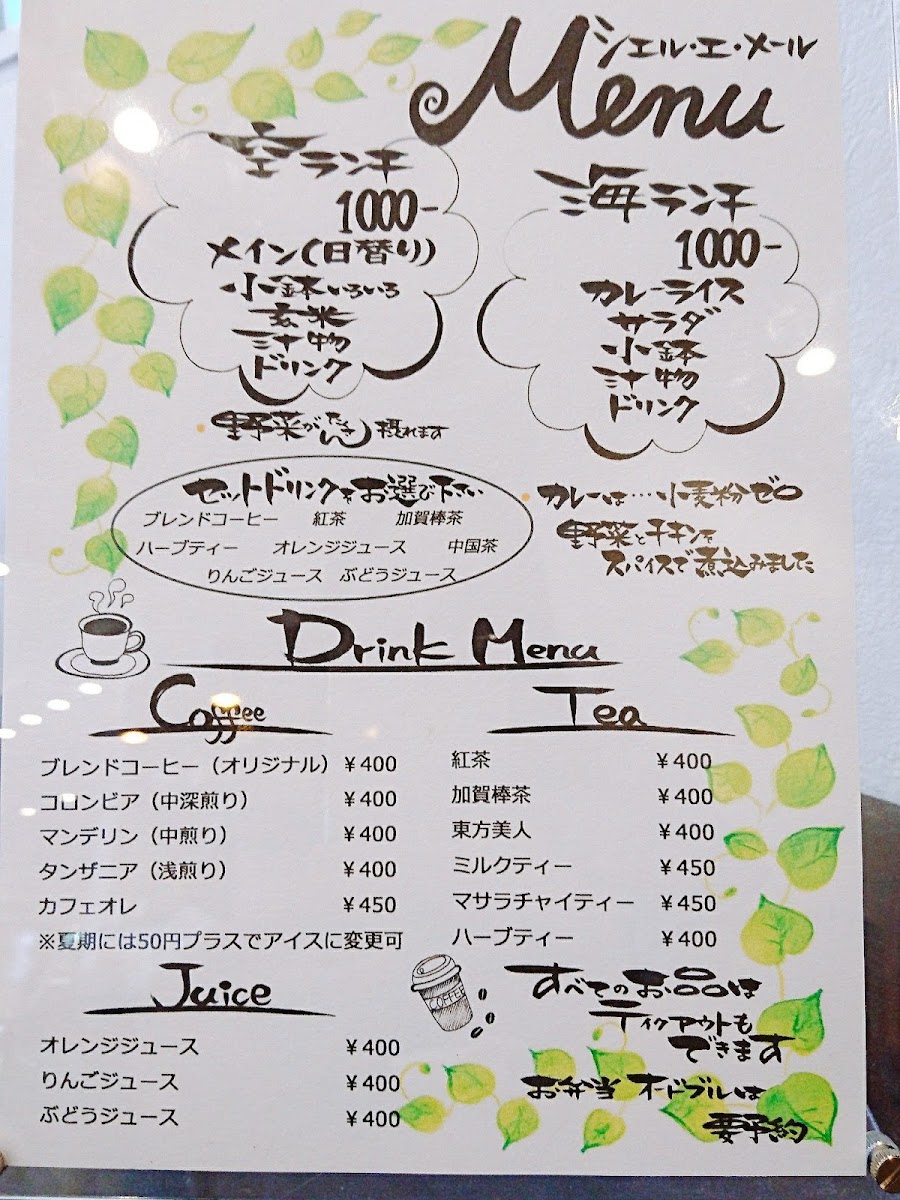 シエル・エ・メール
Menu
空ランチ
1000-
メイン(日替り)
小鉢いろいろ
玄米
汁物
ドリンク
野菜がたくさん摂れます
海ランチ
1000-
カレーライス
サラダ
小鉢
汁物
ドリンク
カレーは…小麦粉ゼロ
野菜とチキンを
スパイスで煮込みました
セットドリンクをお選び下さい
ブレンドコーヒー 紅茶 加賀棒茶
ハーブティー オレンジジュース 中国茶
りんごジュース ぶどうジュース
Drink Menu
Coffee
ブレンドコーヒー（オリジナル）￥400
コロンビア（中深煎り） ￥400
マンデリン（中煎り） ￥400
タンザニア（浅煎り） ￥400
カフェオレ ￥450
※夏期には50円プラスでアイスに変更可
Tea
紅茶 ￥400
加賀棒茶 ￥400
東方美人 ￥400
ミルクティー ￥450
マサラチャイティー ￥450
ハーブティー ￥400
Juice
オレンジジュース ￥400
りんごジュース ￥400
ぶどうジュース ￥400
COFFEE
すべてのお品は
テイクアウトも
できます
お弁当 オードブルは
要予約